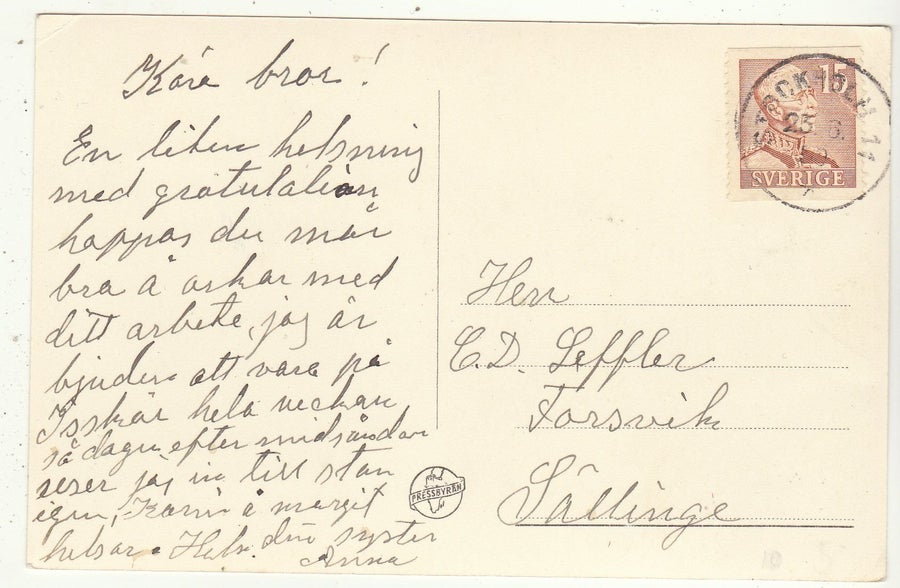 Kära bror!
En liten helsning
med gratulation
hoppas du mår
bra å orkar med
ditt arbete, jag är
bjuden att vara på
Isskär hela veckan
så dagen efter midsåndar
reser jag in till stan
igen, Karin å margit
helsar. Hels. din syster
Anna
15
STOCKHOLM 14
23. 6.
SVERIGE
Herr
C.D. Leffler
Forsvik
Sällinge
PRESSBYRÅN